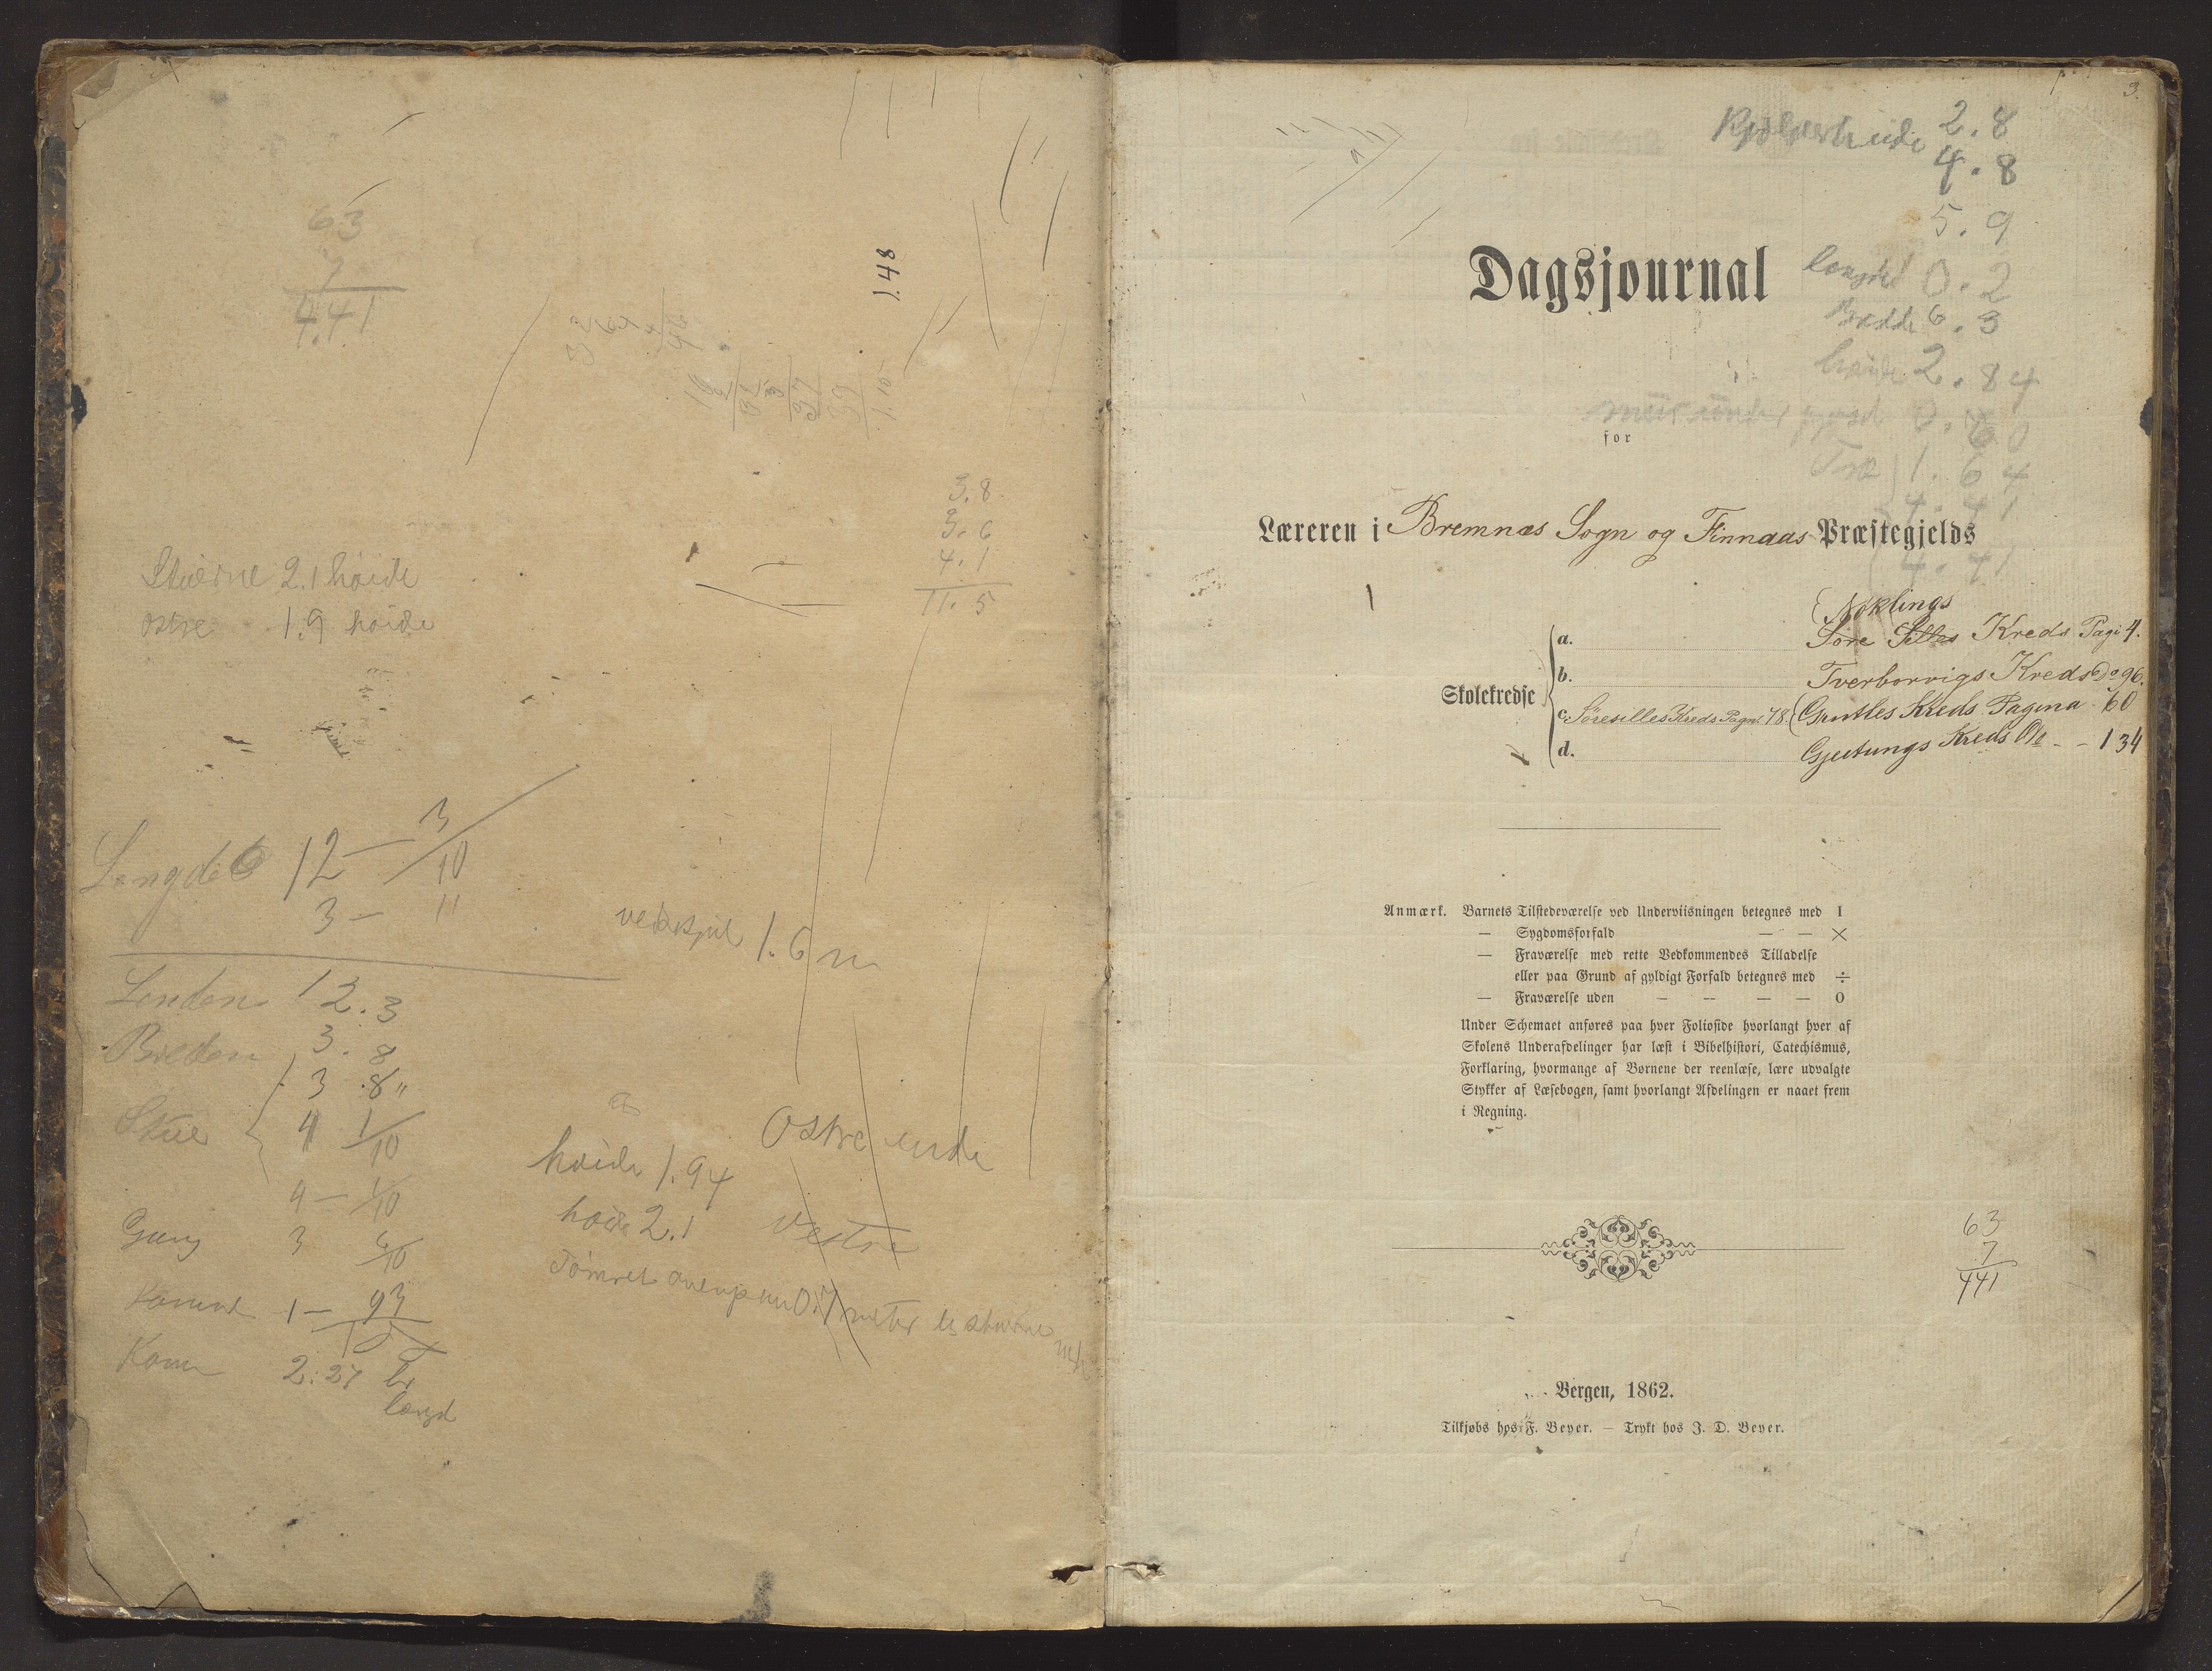 63
7
441
1.48
3.8
3.6
4.1
11.5
Stuerne 2.1 høide
østre 1.9 høide
Længde 6 12 — 3/10
3 — "
vedskjul 1.6 m
Lenden 12.3
Breden 3.8
3.8"
Stue 4 1/10
4 — 1/10
Gang 3 6/10
1 — 93/100
2.27 br
længd
Østre ende
høide 1.94
høide 2.1 Vestre
3.
2.8
4.8
5.9
længde 0.2
Bredde 6.3
høide 2.84
mur under 0.60
1.64
4.41
4.41
Dagsjournal
for
Læreren i Bremnæs Sogn og Finnaas Præstegjelds
Nøklings
Skolekredse
a. Søre Silles Kreds Pagi 4.
b. Tverborvigs Kreds Do 96.
c. Søresilles Kreds Pagni 78. Grutles Kreds Pagina 60
d. Gjeitungs Kreds Do - - 134
Anmærk. Barnets Tilstedeværelse ved Underviisningen betegnes med I
— Sygdomsforfald — — ×
— Fraværelse med rette Vedkommendes Tilladelse
eller paa Grund af gyldigt Forfald betegnes med ÷
— Fraværelse uden — — — — 0
Under Schemaet anføres paa hver Folioside hvorlangt hver af
Skolens Underafdelinger har læst i Bibelhistori, Catechismus,
Forklaring, hvormange af Børnene der reenlæse, lære udvalgte
Stykker af Læsebogen, samt hvorlangt Afdelingen er naaet frem
i Regning.
63
7
441
Bergen, 1862.
Tilkjøbs hos F. Beyer. — Trykt hos J. D. Beyer.